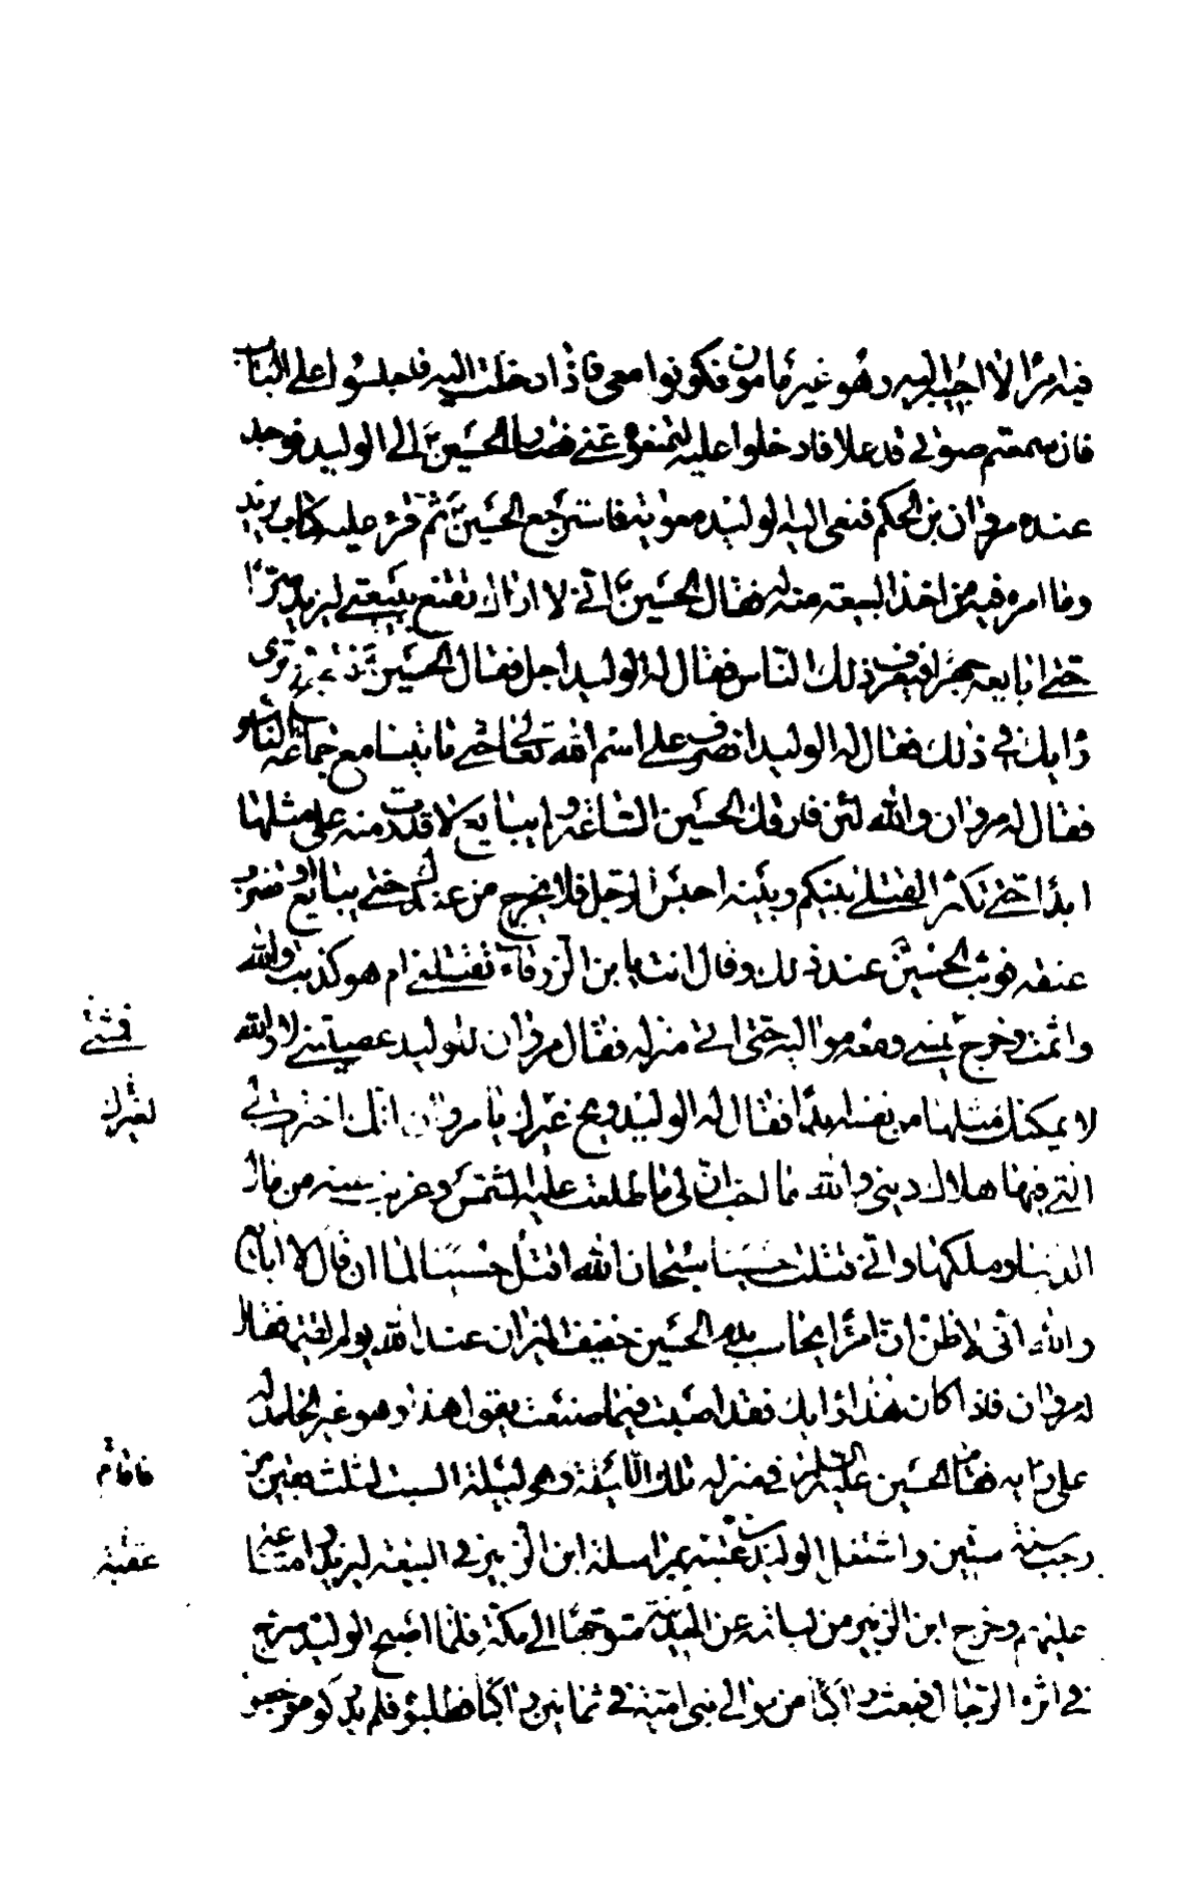 فيه امرًا لا اجيبه اليه وهو غير مامون فكونوا معي فاذا دخلت اليه فاجلسوا على الباب
فان سمعتم صوتي قد علا فادخلوا عليه لتمنعوه عني فصار الحسين الى الوليد فوجد
عنده مروان بن الحكم فنعى اليه الوليد معوية فاسترجع الحسين ثم قرء عليه كتاب يزيد
وما امره فيه من اخذ البيعة منه له فقال الحسين اني لا اراك تقنع ببيعتي ليزيد سرًّا
حتى ابايعه جهرًا فيعرف ذلك الناس فقال له الوليد اجل فقال الحسين فتصبح وترى
رايك في ذلك فقال له الوليد انصرف على اسم الله تعالى حتى تاتينا مع جماعة الناس
فقال له مروان والله لئن فارقك الحسين الساعة ولم يبايع لا قدرت منه على مثلها
ابدًا حتى تكثر القتلى بينكم وبينه احبس الرجل فلا يخرج من عندك حتى يبايع او تضرب
عنقه فوثب الحسين عند ذلك وقال انت يا بن الزرقاء تقتلني ام هو كذبت والله
واثمت وخرج يمشي ومعه مواليه حتى اتى منزله فقال مروان للوليد عصيتني لا والله
فمشى
لا يمكنك مثلها من نفسه ابدًا فقال له الوليد ويح غيرك يا مروان انك اخترت لي
لغيرك
التي فيها هلاك ديني والله ما احب ان لي ما طلعت عليه الشمس وغربت عنه من مال
الدنيا وملكها واني قتلت حسينا سبحان الله اقتل حسينا لما ان قال لا ابايع
والله اني لاظن ان امرءًا يحاسب بدم الحسين خفيف الميزان عند الله يوم القيمة فقال
له مروان فاذا كان هذا رايك فقد اصبت فيما صنعت يقول هذا وهو غير الحامد له
على رايه فاقام الحسين عليه السلم في منزله تلك الليلة وهي ليلة السبت لثلث بقين من
فاقام
رجب سنة ستين واشتغل الوليد بن عتبة بمراسلة ابن الزبير في البيعة ليزيد وامتناعه
عتبة
عليهم وخرج ابن الزبير من ليلته عن المدينة متوجهًا الى مكة فلما اصبح الوليد سرح
في اثره الرجال فبعث راكبًا من موالي بني امية في ثمانين راكبًا فطلبوه فلم يدركوه فرجعوا